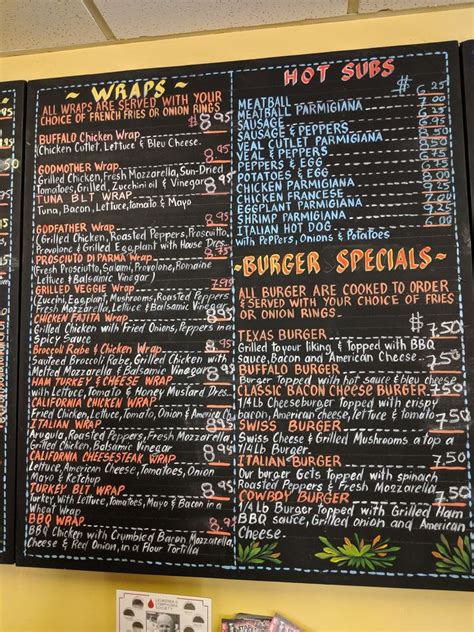 WRAPS
ALL WRAPS ARE SERVED WITH YOUR
CHOICE OF FRENCH FRIES OR ONION RINGS
BUFFALO Chicken Wrap $8.95
Chicken Cutlet, Lettuce & Bleu Cheese.
GODMOTHER Wrap 8.95
Grilled Chicken, Fresh Mozzarella, Sun-Dried
Tomatoes, Grilled, Zucchini oil & Vinegar
TUNA BLT WRAP 8.95
Tuna, Bacon, Lettuce, Tomato & Mayo
GODFATHER Wrap 8.95
(Grilled Chicken, Roasted Peppers, Prosciutto,
Provolone & Grilled Eggplant with House Dres.
PROSCIUTO DI PARMA Wrap 8.95
(Fresh Prosciutto, Salami, Provolone, Romaine
Lettuce & Balsamic Vinegar)
GRILLED VEGGIE Wrap
(Zucchini, Eggplant, Mushrooms, Roasted Peppers
Fresh Mozzarella, Lettuce & Balsamic Vinegar
CHICKEN FAJITA Wrap 8.95
Grilled Chicken with Fried Onions, Peppers in a
Spicy Sauce
Broccoli Rabe & Chicken Wrap 8.95
Sauteed Broccoli Rabe, Grilled Chicken with
Melted Mozzarella & Balsamic Vinegar
HAM TURKEY & CHEESE WRAP 8.95
with Lettuce, Tomato & Honey Mustard Dres.
CALIFORNIA CHICKEN WRAP 8.95
Fried Chicken, Lettuce, Tomato, Onion & America
ITALIAN WRAP 8.95
Arugula, Roasted Peppers, Fresh Mozzarella
Grilled Chicken, Balsamic Vinegar
CALIFORNIA CHEESESTEAK WRAP 8.95
Lettuce, American Cheese, Tomatoes, Onion
Mayo & Ketchup
TURKEY BLT WRAP 8.95
Turkey, with Lettuce, Tomatoes, Mayo & Bacon in a
Wheat Wrap
BBQ WRAP 8.95
BBQ Chicken with Crumbied Bacon, Romaine
Cheese & Red Onion, in a Flour Tortilla
HOT SUBS
MEATBALL $6.25
MEATBALL PARMIGIANA 7.00
SAUSAGE
SAUSAGE & PEPPERS
VEAL CUTLET PARMIGIANA
VEAL & PEPPERS
PEPPERS & EGG
POTATOES & EGG
CHICKEN PARMIGIANA
CHICKEN FRANCESE
EGGPLANT PARMIGIANA
SHRIMP PARMIGIANA
ITALIAN HOT DOG 6.00
with PEPPERS, Onions & Potatoes
BURGER SPECIALS
ALL BURGER ARE COOKED TO ORDER
& SERVED WITH YOUR CHOICE OF FRIES
OR ONION RINGS.
TEXAS BURGER $7.50
Grilled to your liking & topped with BBQ
sauce, Bacon and American Cheese.
BUFFALO BURGER 7.50
Burger topped with hot sauce & bleu cheese
CLASSIC BACON CHEESE BURGER 7.50
1/4Lb Cheeseburger topped with crispy
bacon, American cheese, lettuce & tomato
SWISS BURGER 7.50
Swiss Cheese & Grilled Mushrooms a top a
1/4Lb Burger.
ITALIAN BURGER 7.50
Our burger Gets topped with spinach
Roasted Peppers & Fresh Mozzarella.
COWBOY BURGER 7.50
1/4Lb Burger topped with Grilled Ham
BBQ sauce, Grilled onion and American
Cheese.
LEUKEMIA &
LYMPHOMA
SOCIETY